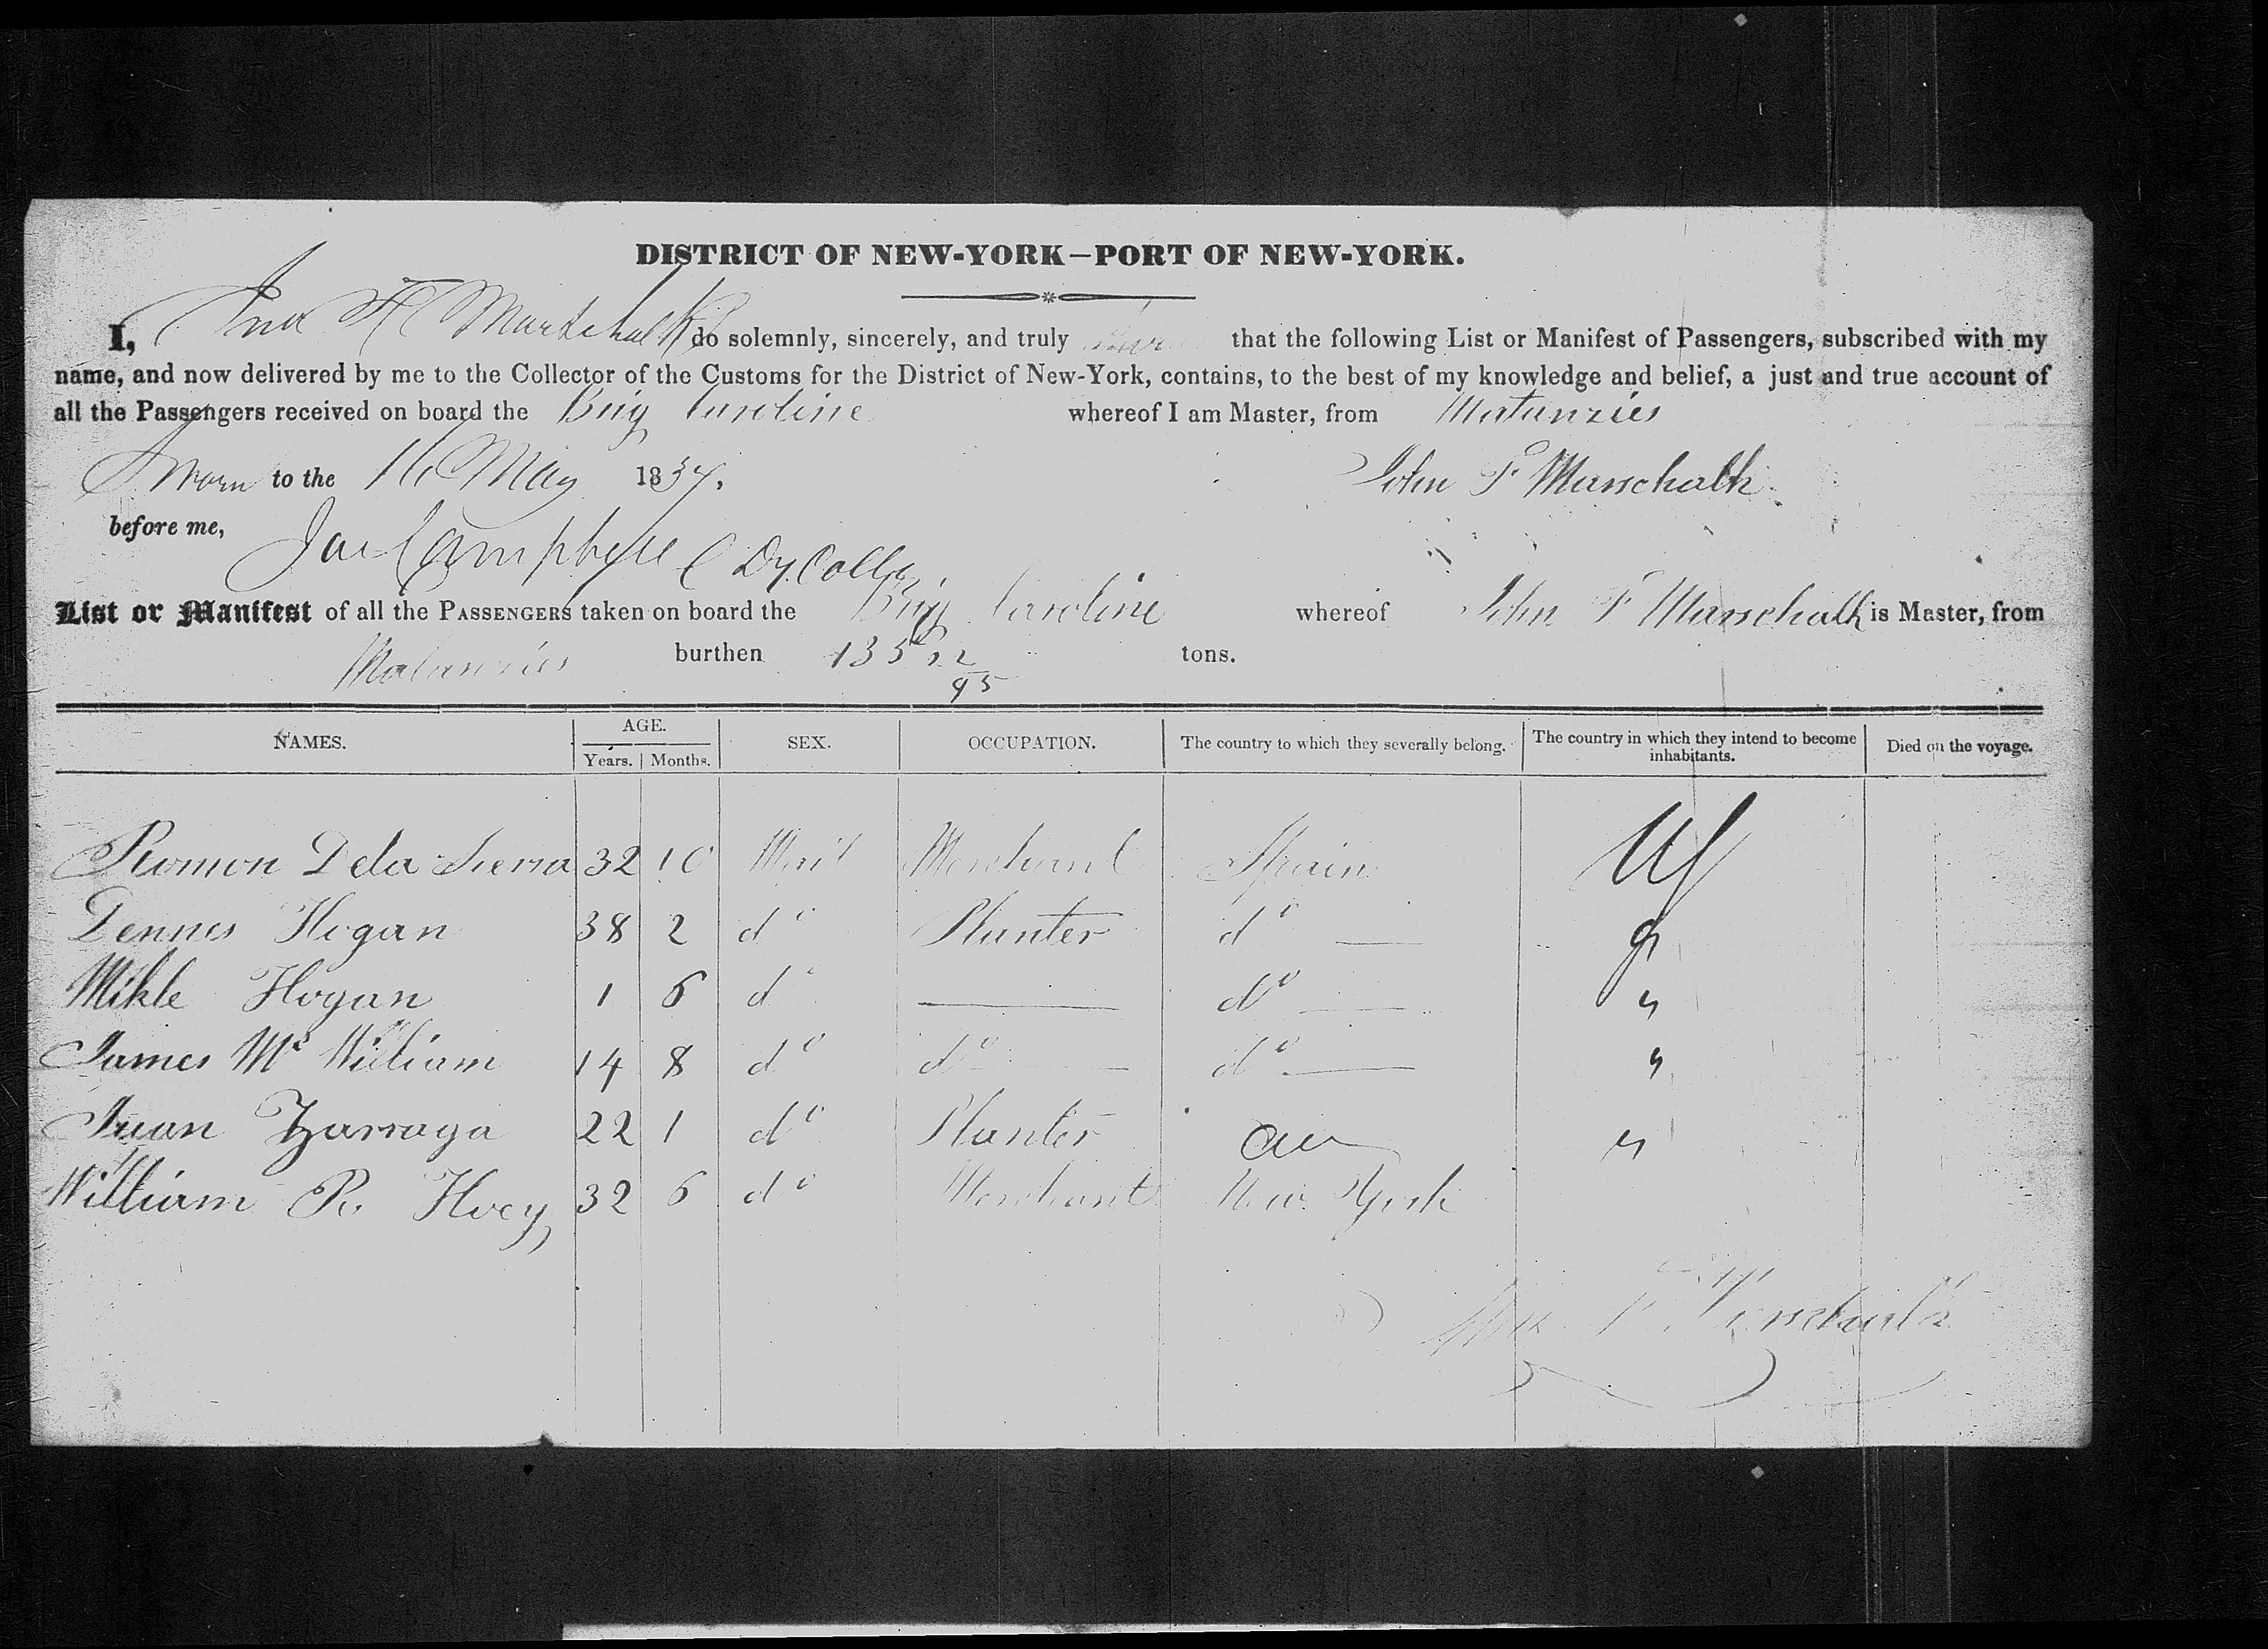 DISTRICT OF NEW-YORK—PORT OF NEW-YORK.
I, Jno F Marschalk do solemnly, sincerely, and truly that the following List or Manifest of Passengers, subscribed with my
name, and now delivered by me to the Collector of the Customs for the District of New-York, contains, to the best of my knowledge and belief, a just and true account of
all the Passengers received on board the Brig Caroline whereof I am Master, from Matanzies
Sworn to the 16 May 1837. John F Marschalk
before me,
Jas Campbell Dy. Collr
List or Manifest of all the PASSENGERS taken on board the Brig Caroline whereof John F Marschalk is Master, from
Matanzies burthen 135 22/95 tons.
NAMES. AGE. Years. Months. SEX. OCCUPATION. The country to which they severally belong. The country in which they intend to become inhabitants. Died on the voyage.
Romon Dela Sierra 32 10 Mail Merchant Spain US
Dennes Hogan 38 2 do Planter do —
Mikle Hogan 1 6 do — do — "
James Mc William 14 8 do do — do — "
Juan Yzarraga 22 1 do Planter "
William R. Hoey 32 6 do Merchant New York
John F Marschalk